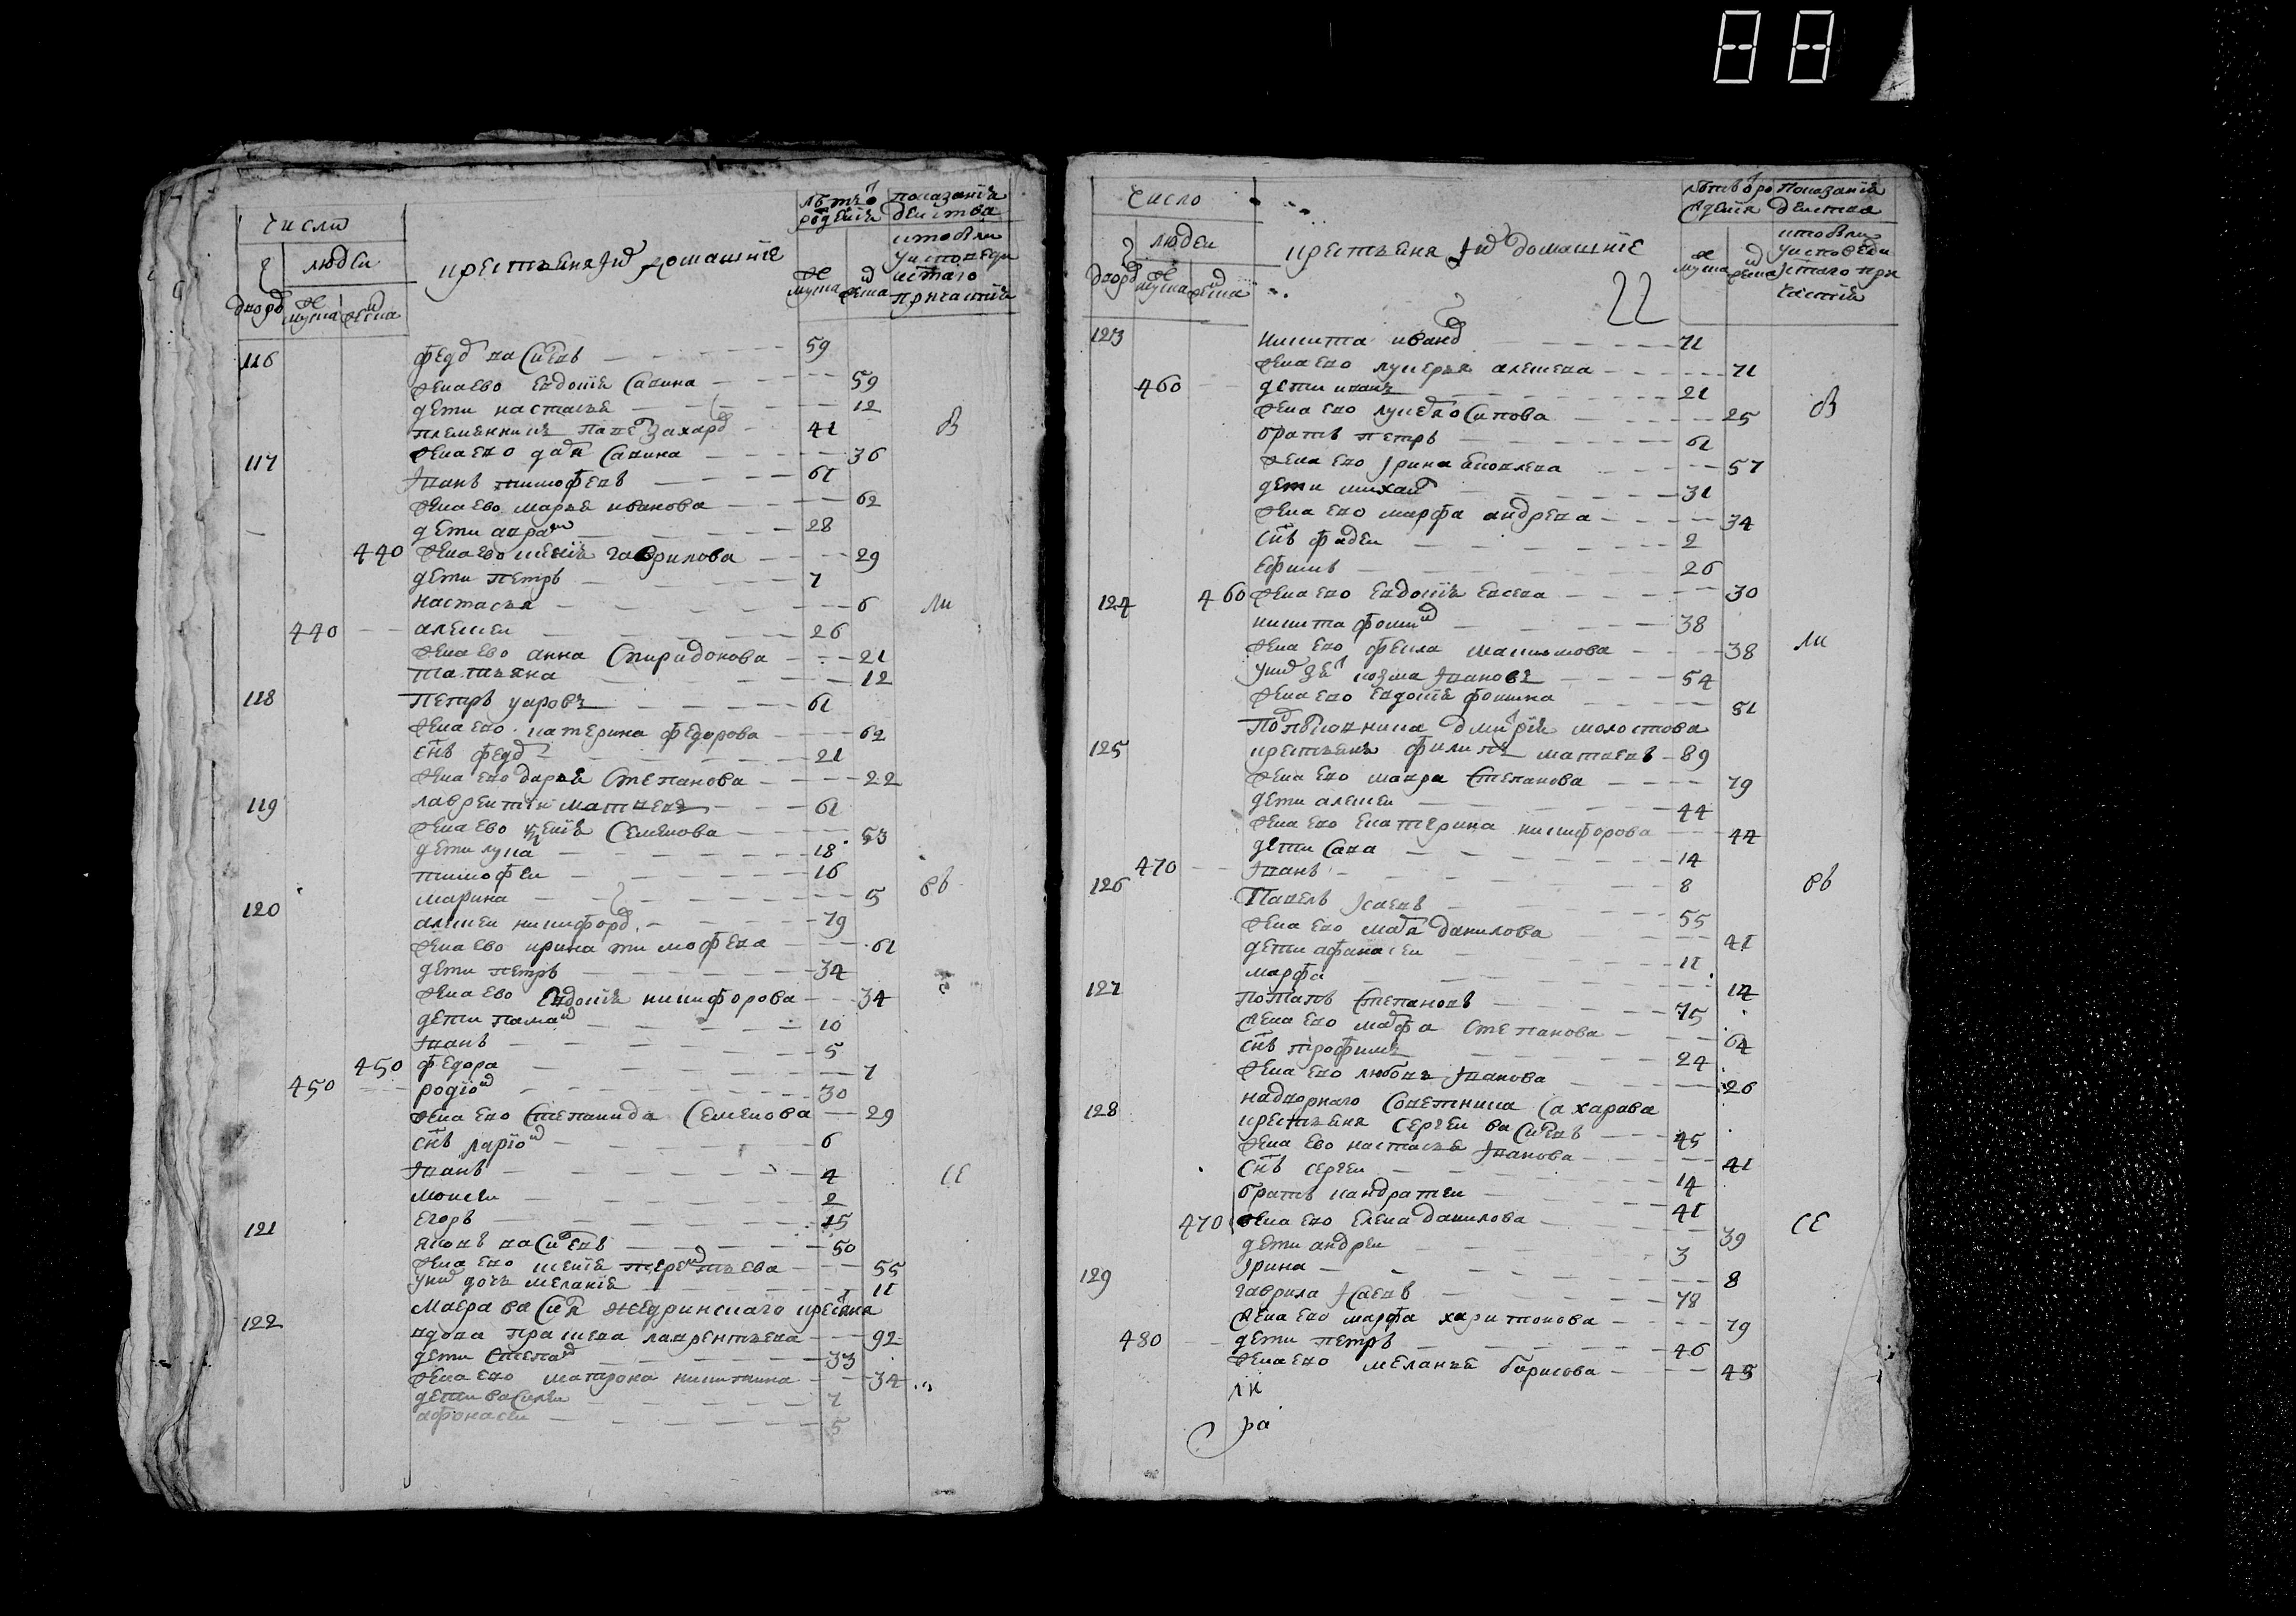 88
число
людеи
дворов
мужеска
женска
крестьяня и их домашние
лѣтъ от рождения
мужеска
женска
показание действа
кто были у исповеди и святаго причастия
116 федор василев 59
жена ево евдокия савина 59
дети настасья 12
племянникъ павел захаров 41
жена ево дарья савина 36
117 иванъ тимофеевъ 61
жена ево марья иванова 62
дети аврам 28
440 жена ево гаврилова 29
дети петръ 7
настасья 6
440 алексеи 26
жена ево анна спиридонова 21
татьяна 12
118 петръ уаровъ 61
жена ево катерина федорова 62
снъ федор 21
жена ево дарья степанова 22
119 лаврентеи матвеевъ 61
жена ево ксения семенова 53
дети лука 18
тимофеи 16
марина 5
120 алексеи никифоров 79
жена ево ирина тимофеева 61
дети петръ 34
жена ево евдокия никифорова 34
дети роман 10
иванъ 5
450 федора 7
450 родион 30
жена ево степанида семенова 29
снъ ларион 6
иванъ 4
моисеи 2
егоръ 15
121 яковъ василевъ 50
жена ево терентьева 55
дочь мелания 11
маеора василья жедринскаго крестьяня
122 вдова прасковя лаврентьева 92
дети степан 33
жена ево матрона никитина 34
дети василеи 7
афонасеи 5
число
людеи
дворов
мужеска
женска
крестьяня и их домашние
лѣтъ от рождения
мужеска
женска
показание действа
кто были у исповеди и святаго причастия
22
123 никита иванов 71
жена ево лукерья алексеева 71
460 дети иванъ 21
жена ево лукерья осипова 25
братъ петръ 61
жена ево ирина яковлева 57
дети михаил 31
жена ево марфа андреева 34
снъ фадеи 2
ефимъ 26
460 жена ево евдокия евсеева 30
124 никита фомин 38
жена ево фекла максимова 38
у них зять козма ивановъ 54
жена ево евдокия фомина 51
подполковника дмитрия молостова
125 крестьянинъ филипъ матвеевъ 89
жена ево мавра степанова 79
дети алексеи 44
жена ево екатерина никифорова 44
дети сава 14
470 иванъ 8
126 павелъ исаевъ 55
жена ево марья данилова 41
дети афанасеи 11
марфа 14
127 потапъ степановъ 75
жена ево марфа степанова 64
снъ трофимъ 24
жена ево любовь иванова 26
надворнаго советника сахарава
128 крестьяня сергеи василевъ 45
жена ево настасья иванова 41
снъ сергеи 14
братъ кандратеи 41
470 жена ево елена данилова 39
дети андреи 3
ирина 8
129 гаврила исаевъ 78
жена ево марфа харитонова 79
480 дети петръ 46
жена ево меланья борисова 45